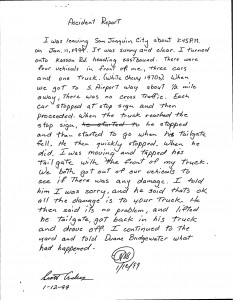 Accident Report
I was leaving San Joaquin City about 2:45 P.M.
on Jan. 11, 1999. It was sunny and clear. I turned
onto Kasson Rd. heading eastbound. There were
four vehicals in front of me, three cars
and one truck. (White Chevy 1970's). When
we got to S. Airport way about ½ mile
away, there was no cross traffic. Each
car stopped at stop sign and then
proceeded. When the truck reached the
stop sign, he stopped
and then started to go when his tailgate
fell. He then quickly stopped. When he
did, I was moving and tapped his
tailgate with the front of my truck.
We both got out of our vehicals to
see if there was any damage. I told
him I was sorry, and he said thats ok
all the damage is to your truck. He
then said its no problem, and lifted
his tailgate, got back in his truck
and drove off. I continued to the
yard and told Duane Bridgewater what
had happened.
1-12-99